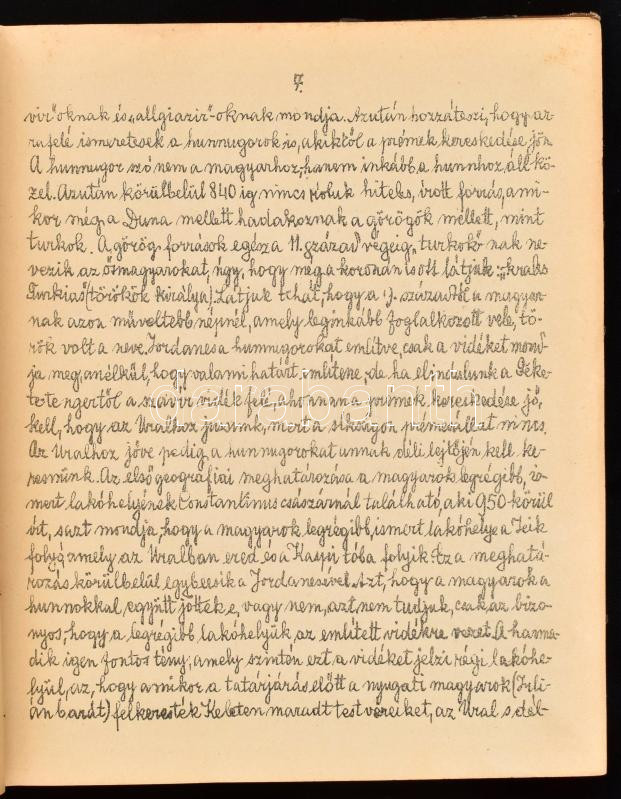 7.
vir"oknak és „allgiazir"-oknak mondja. Azután hozzáteszi, hogy ar-
rafelé ismeretesek a hunnugorok is, akiktől a prémek kereskedése jön.
A hunnugor szó nem a magyarhoz, hanem inkább a hunnhoz áll kö-
zel. Azután körülbelül 840 ig nincs róluk hiteles, írott forrás, ami-
kor még a Duna mellett hadakoznak a görögök mellett, mint
turkok. A görög források egész a 11. század végeig „turkok"nak ne-
vezik az ősmagyarokat, úgy, hogy még a koronán is ott látjuk: „krales
Turkias" (törökök királya). Látjuk tehát, hogy a 9. századtól a magyar-
nak azon műveltebb népnél, amely leginkább foglalkozott vele, tö-
rök volt a neve. Jordanes a hunnugorokat említve, csak a vidéket mond-
ja meg, anélkül, hogy valami határt említene, de ha elindulunk a Feke-
te-tengertől a szavir vidék felé, ahonnan a prémek kereskedése jő,
kell, hogy az Uralhoz jussunk, mert a síkságon prémesállat nincs.
Az Uralhoz jőve pedig a hunnugorokat annak déli lejtőjén kell ke-
resnünk. Az első geográfiai meghatározása a magyarok legrégibb, is-
mert lakóhelyének Constantinus császárnál található, aki 950-körül
írt, s azt mondja, hogy a magyarok legrégibb, ismert lakóhelye a Jeik
folyó, amely az Uralban ered, és a Kaspi tóba folyik. Ez a meghatá-
rozás körülbelül egybeesik a Jordanesével. Azt, hogy a magyarok a
hunnokkal együtt jöttek e, vagy nem, azt nem tudjuk, csak az bizo-
nyos, hogy a legrégibb lakóhelyük az említett vidékre vezet. A harma-
dik igen fontos tény, amely szintén ezt a vidéket jelzi régi lakóhe-
lyül, az, hogy amikor a tatárjárás előtt a nyugati magyarok (Juli-
án barát) felkeresték Keleten maradt testvéreiket, az Ural s dél-
darabanth